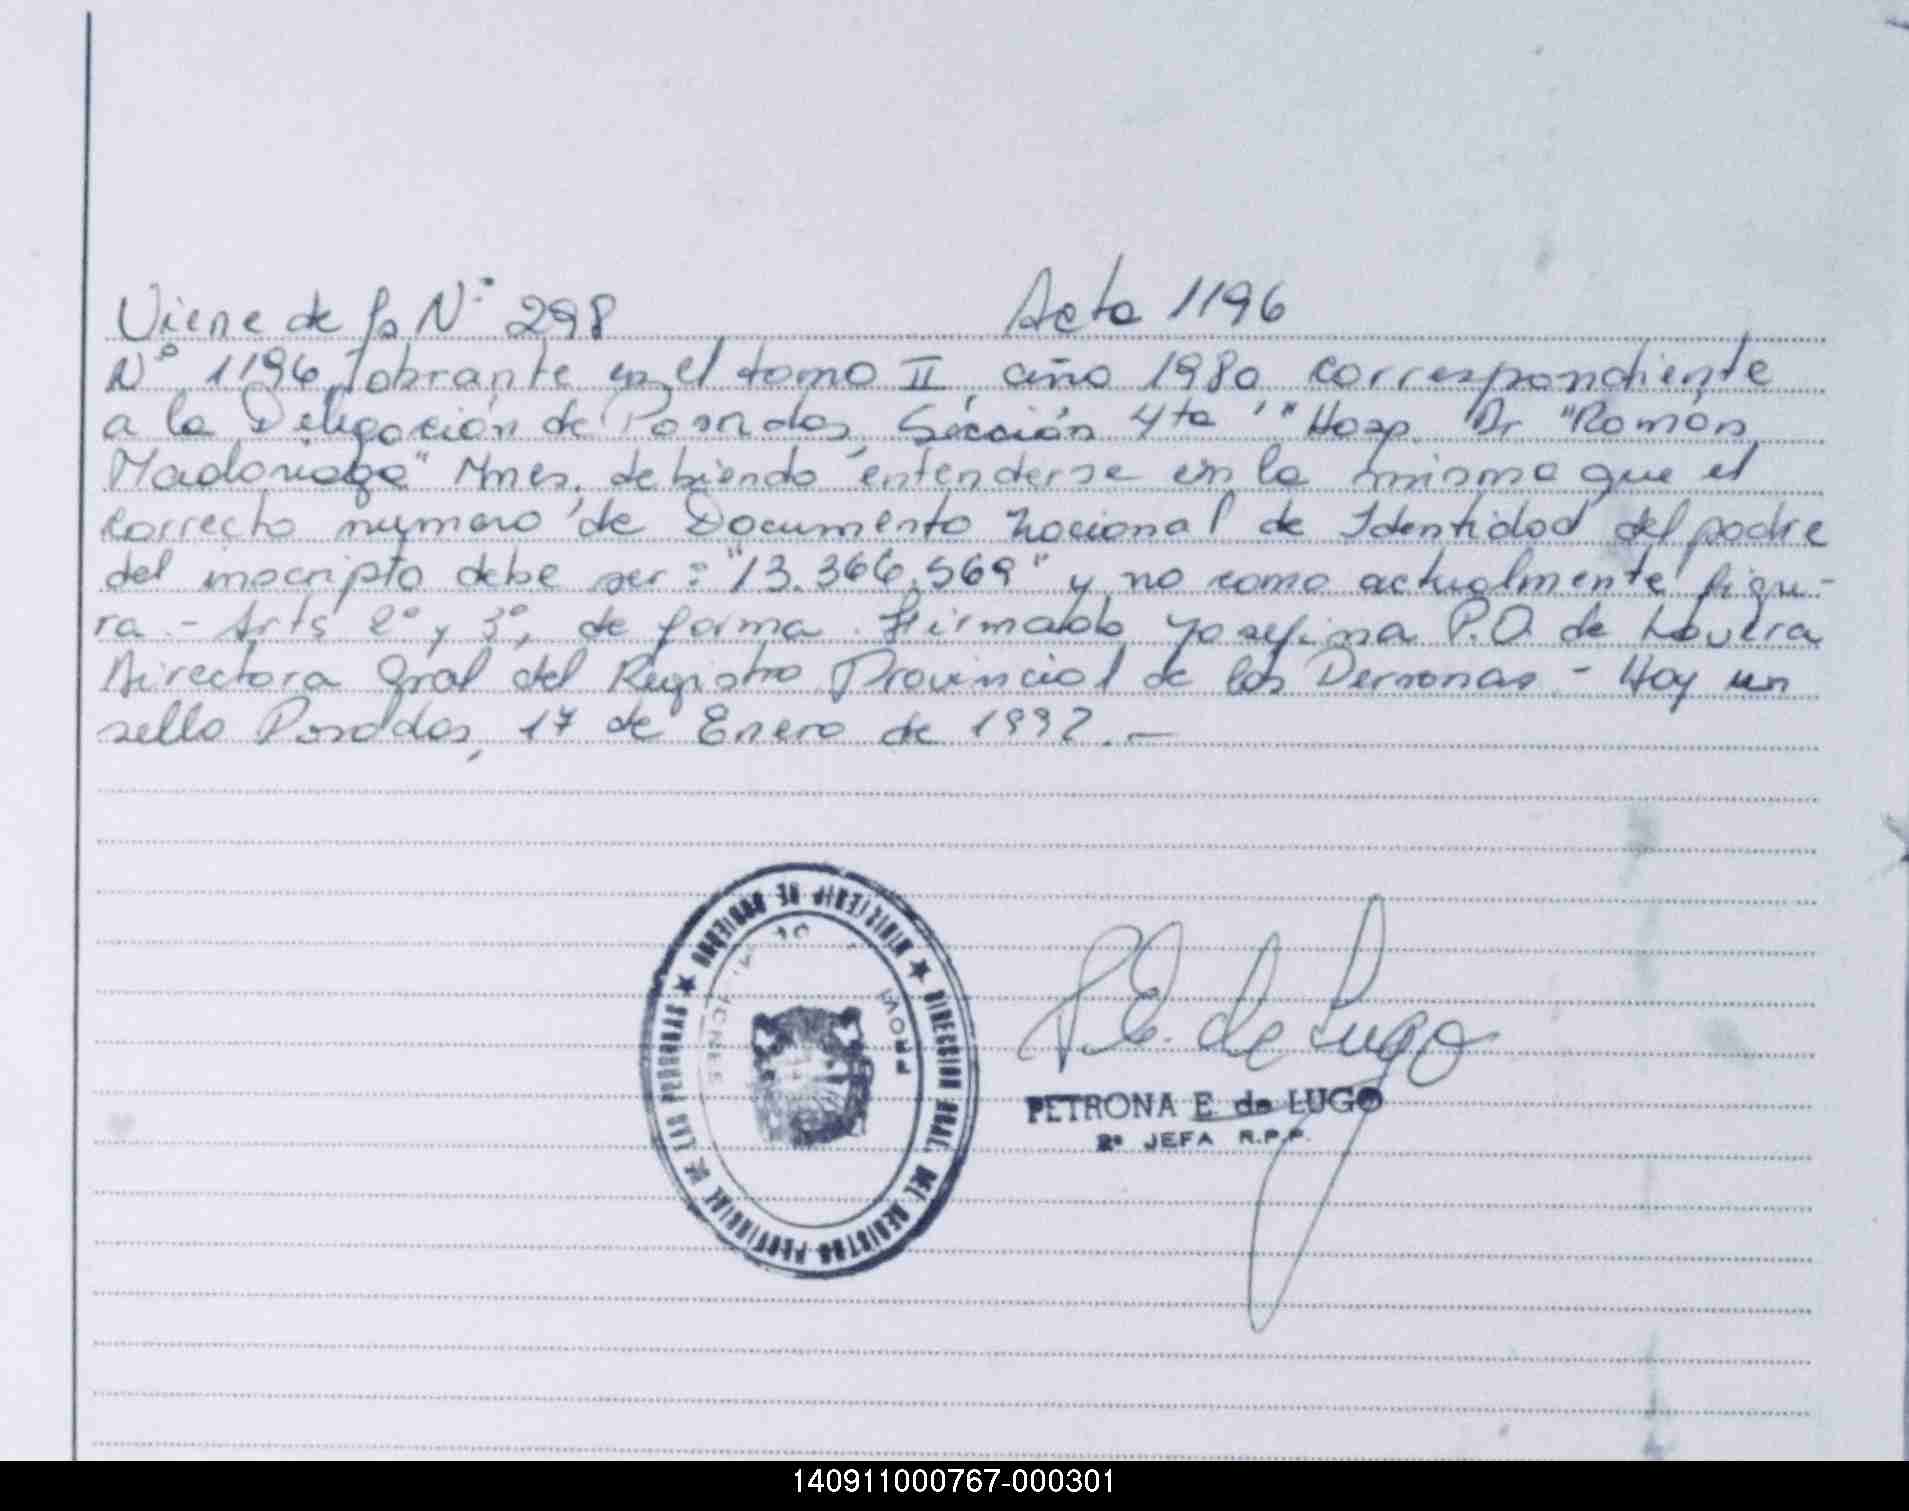 Viene de fs N° 298 Acta 1196
N° 1196, obrante en el tomo II, año 1980 correspondiente
a la Delegación de Posadas, Sección 4ta "Hosp. Dr "Ramón
Madariaga" Mnes. debiendo entenderse en la misma que el
correcto numero de Documento Nacional de Identidad del padre
del inscripto debe ser: "13.366.569" y no como actualmente figu-
ra.- Arts 2° y 3°, de forma. Firmado Yosefina P.O. de Lovera
Directora Gral del Registro Provincial de las Personas - Hay un
sello Posadas, 17 de Enero de 1992.-
MINISTERIO DE GOBIERNO ★ DIRECCION GRAL. DEL REGISTRO PROVINCIAL DE LAS PERSONAS ★
P.E. de Lugo
PETRONA E. de LUGO
2ª JEFA R.P.P.
140911000767-000301